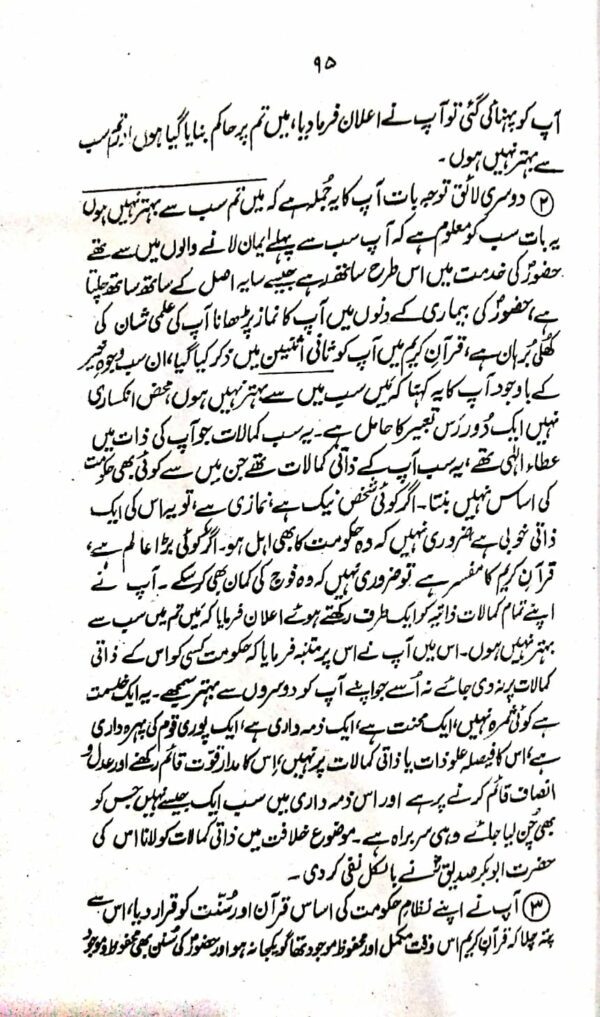 ۹۵
آپ کو پہنائی گئی تو آپ نے اعلان فرما دیا، میں تم پر حاکم بنایا گیا ہوں اور تم سب
سے بہتر نہیں ہوں۔
② دوسری لائق توجہ بات آپ کا یہ جملہ ہے کہ میں تم سب سے بہتر نہیں ہوں
یہ بات سب کو معلوم ہے کہ آپ سب سے پہلے ایمان لانے والوں میں سے تھے
حضورؐ کی خدمت میں اس طرح ساتھ رہے جیسے سایہ اصل کے ساتھ ساتھ چلتا
ہے، حضورؐ کی بیماری کے دنوں میں آپ کا نماز پڑھانا آپ کی علمی شان کی
کھلی بُرہان ہے، قرآن کریم میں آپ کو ثانی اثنین میں ذکر کیا گیا، ان سب وجوہِ خیر
کے باوجود آپ کا یہ کہنا کہ میں سب میں سے بہتر نہیں ہوں، محض انکساری
نہیں ایک دُور رَس تعبیر کا حامل ہے۔ یہ سب کمالات جو آپ کی ذات میں
عطاء الٰہی تھے، یہ سب آپ کے ذاتی کمالات تھے جن میں سے کوئی بھی حکومت
کی اساس نہیں بنتا۔ اگر کوئی شخص نیک ہے، نمازی ہے، تو یہ اس کی ایک
ذاتی خوبی ہے ضروری نہیں کہ وہ حکومت کا بھی اہل ہو۔ اگر کوئی بڑا عالم ہے،
قرآن کریم کا مفسر ہے تو ضروری نہیں کہ وہ فوج کی کمان بھی کر سکے۔ آپ نے
اپنے تمام کمالات ذاتیہ کو ایک طرف رکھتے ہوئے اعلان فرمایا کہ میں تم میں سب سے
بہتر نہیں ہوں۔ اس میں آپ نے اس پر متنبہ فرمایا کہ حکومت کسی کو اس کے ذاتی
کمالات پر نہ دی جائے نہ اُسے جو اپنے آپ کو دوسروں سے بہتر سمجھے۔ یہ ایک خدمت
ہے کوئی ثمرہ نہیں، ایک محنت ہے، ایک ذمہ داری ہے، ایک پوری قوم کی پہرہ داری
ہے، اس کا فیصلہ علو ذات یا ذاتی کمالات پر نہیں، اِس کا مدار قوت قائم رکھنے اور عدل و
انصاف قائم کرنے پر ہے اور اس ذمہ داری میں سب ایک جیسے نہیں جس کو
بھی چُن لیا جائے وہی سربراہ ہے۔ موضوع خلافت میں ذاتی کمالات کو لانا اس کی
حضرت ابوبکر صدیقؓ نے بالکل نفی کر دی۔
③ آپ نے اپنے نظامِ حکومت کی اساس قرآن اور سُنّت کو قرار دیا، اس سے
پتہ چلا کہ قرآن کریم اس وقت مکمل اور محفوظ موجود تھا گو یکجا نہ ہو اور حضورؐ کی سُنن بھی محفوظ موجود